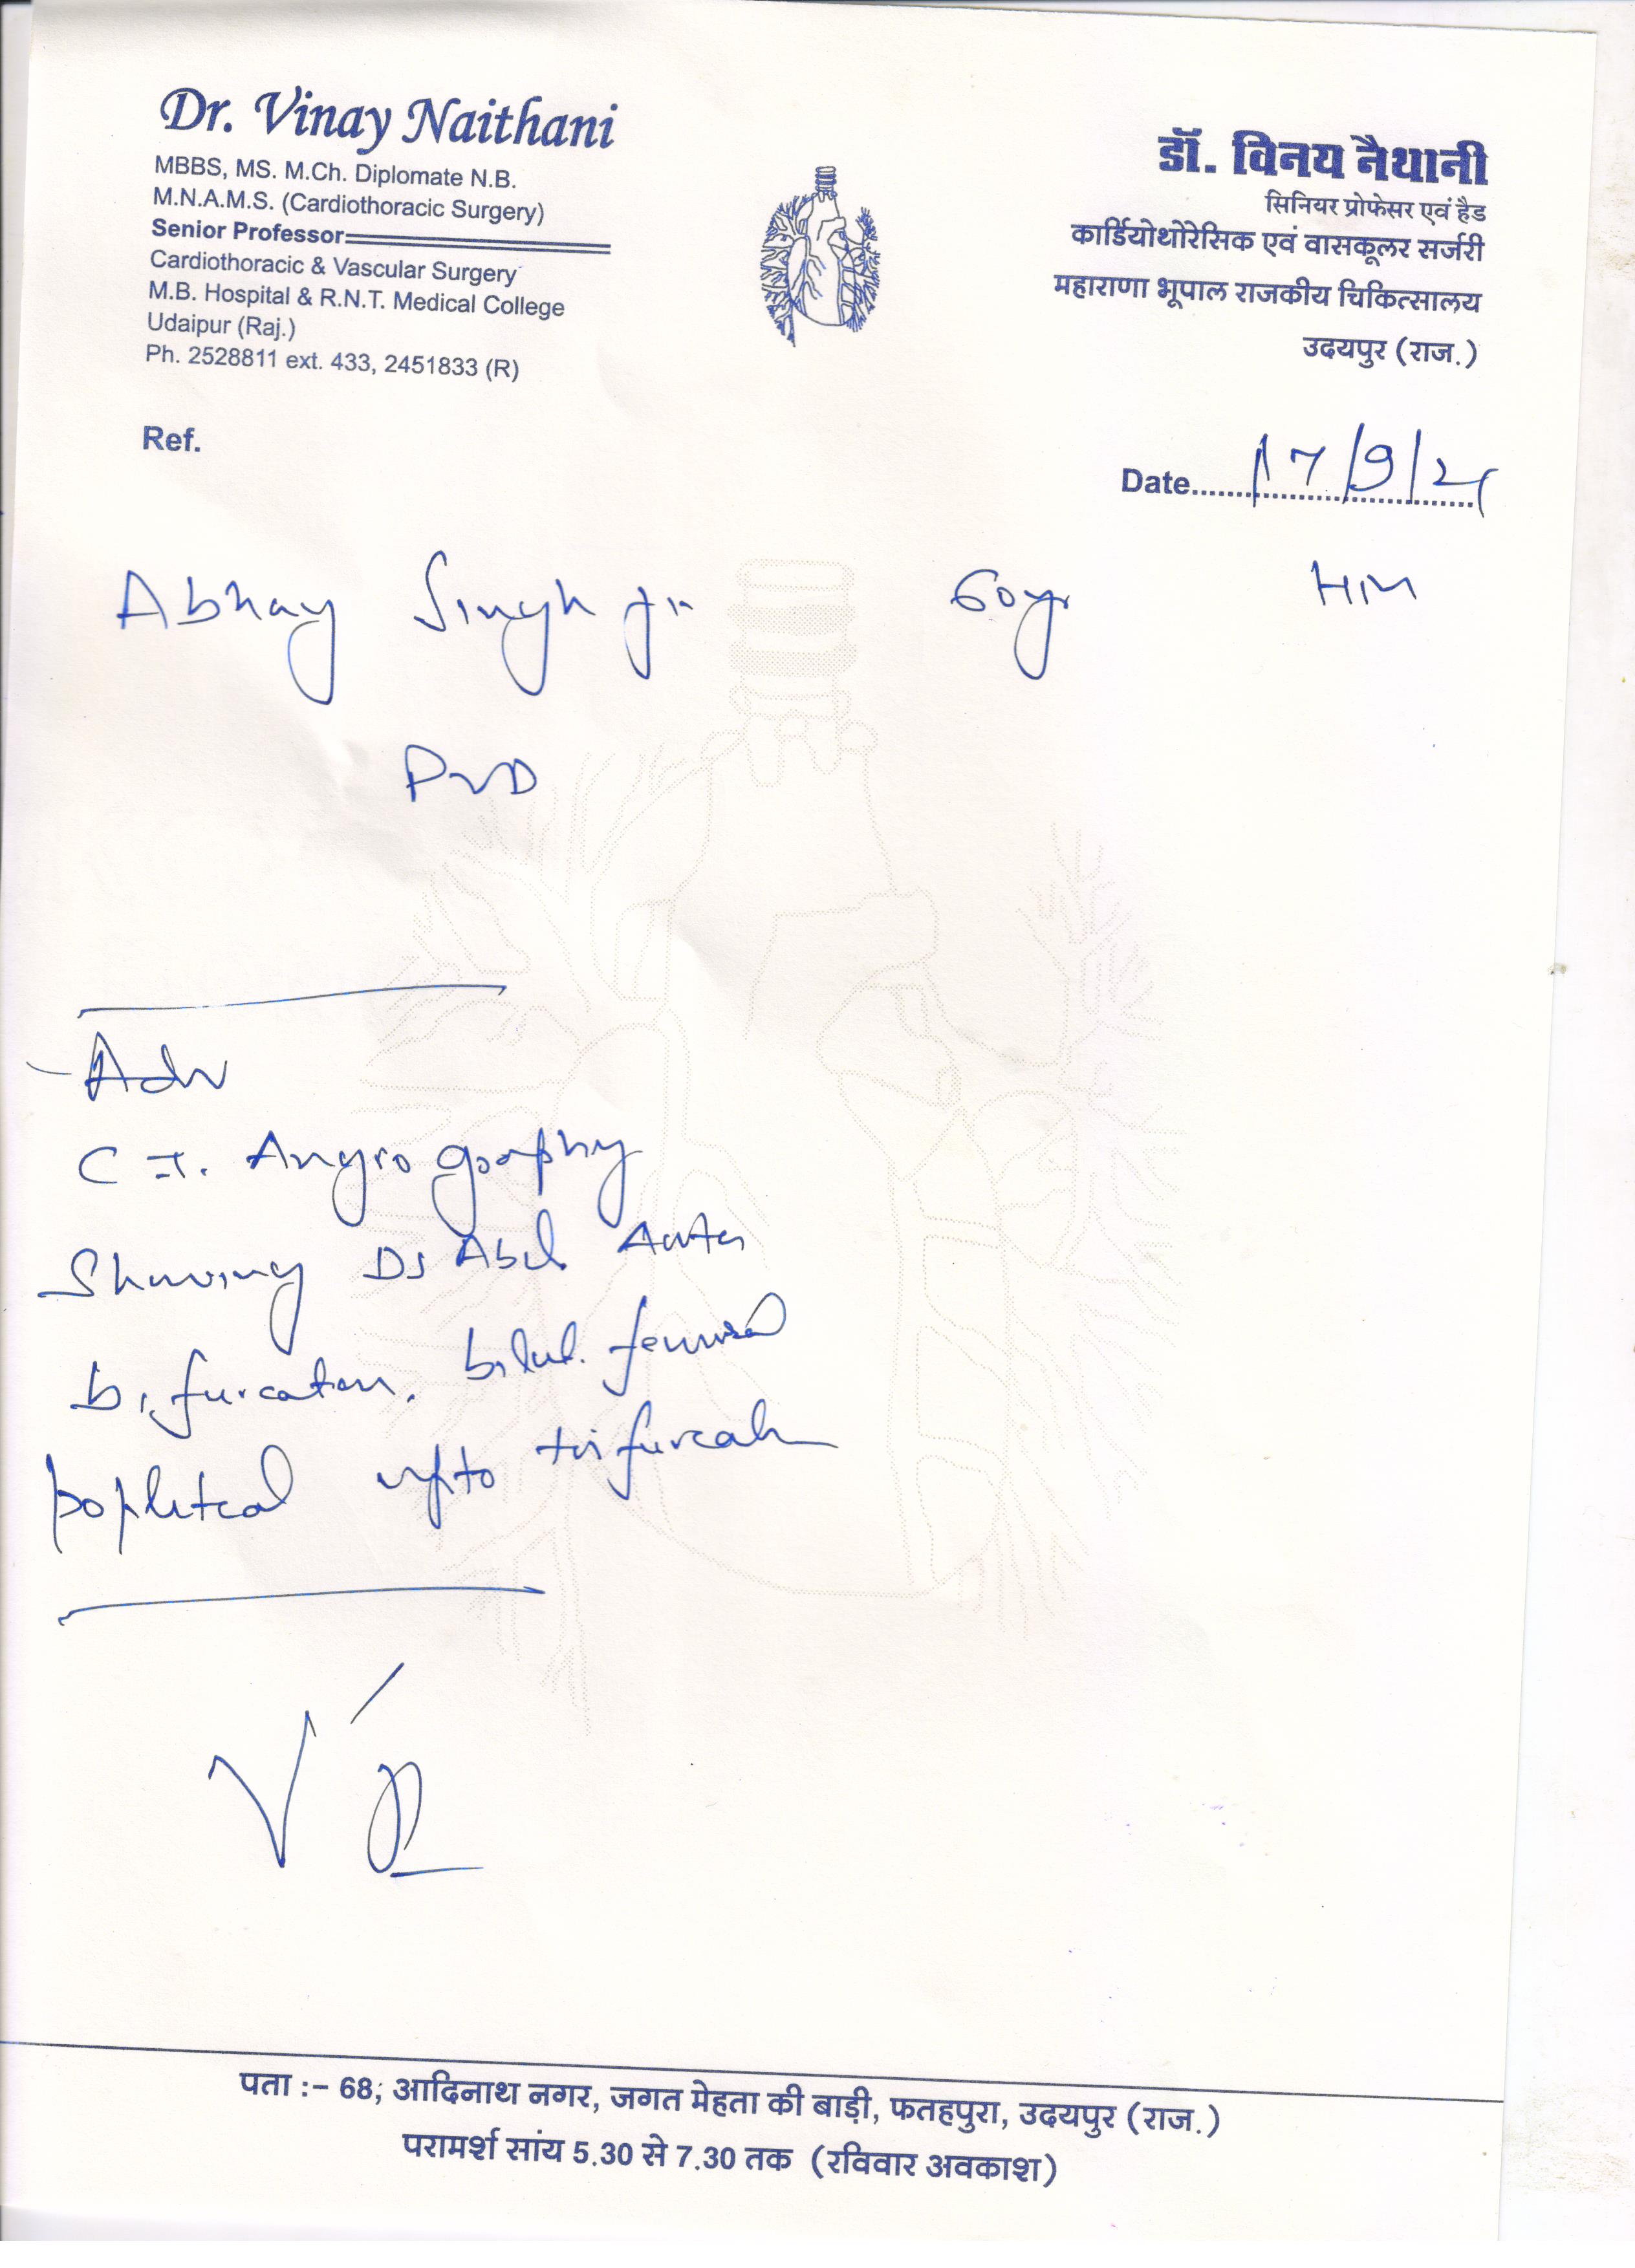 Dr. Vinay Naithani
MBBS, MS. M.Ch. Diplomate N.B.
M.N.A.M.S. (Cardiothoracic Surgery)
Senior Professor
Cardiothoracic & Vascular Surgery
M.B. Hospital & R.N.T. Medical College
Udaipur (Raj.)
Ph. 2528811 ext. 433, 2451833 (R)
डॉ. विनय नैथानी
सिनियर प्रोफेसर एवं हैड
कार्डियोथोरेसिक एवं वासकूलर सर्जरी
महाराणा भूपाल राजकीय चिकित्सालय
उदयपुर (राज.)
Ref.
Date 17/9/21
Abhay Singh ji 60yr HM
PVD
Adv
C.T. Angiography
Showing Ds Abd. Aorta
bifurcation. bilat. femoral
popliteal upto trifurcatn
पता :- 68, आदिनाथ नगर, जगत मेहता की बाड़ी, फतहपुरा, उदयपुर (राज.)
परामर्श सांय 5.30 से 7.30 तक (रविवार अवकाश)